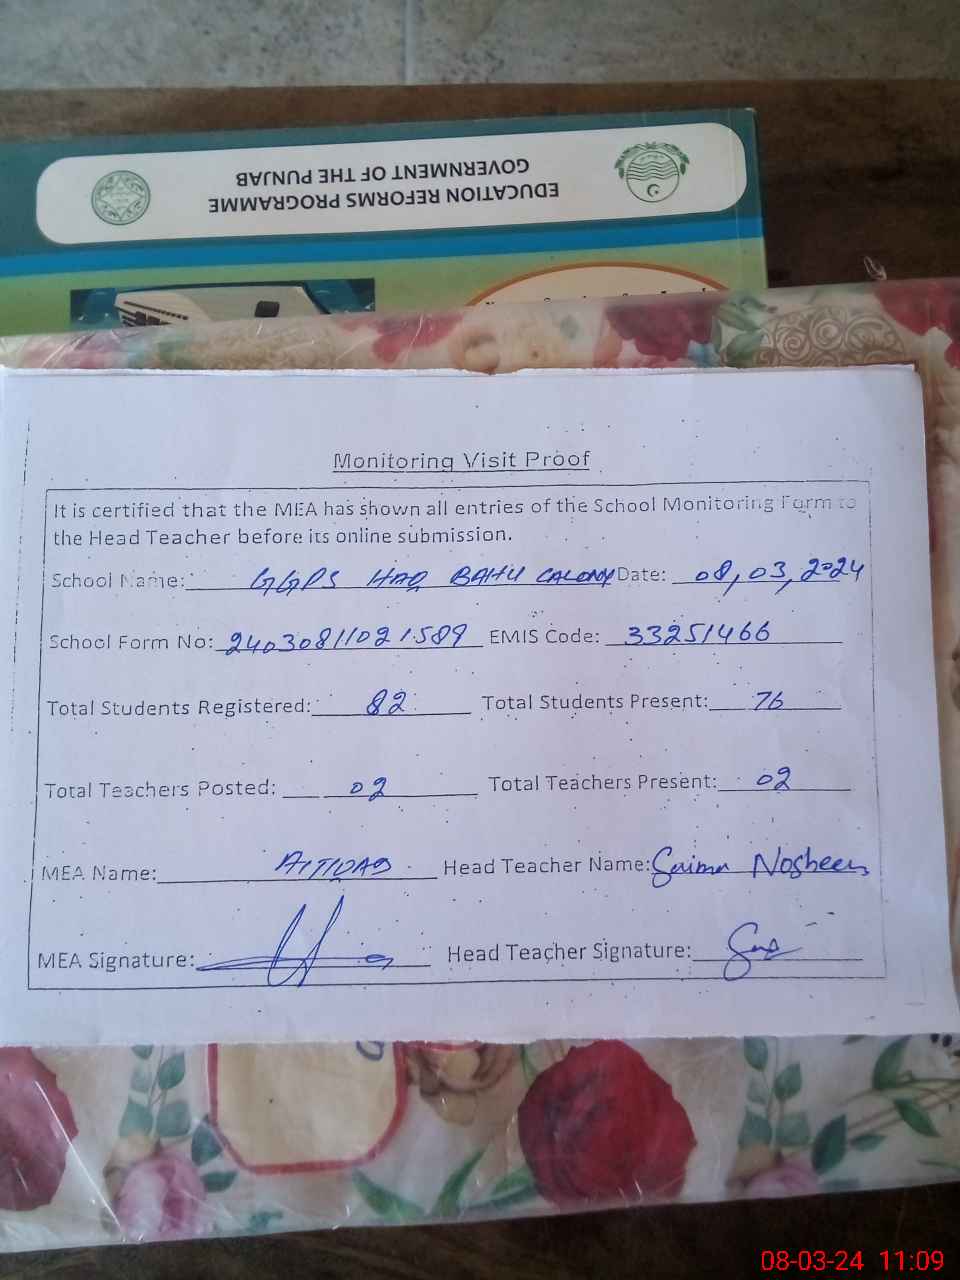 EDUCATION REFORMS PROGRAMME
GOVERNMENT OF THE PUNJAB
Monitoring Visit Proof
It is certified that the MEA has shown all entries of the School Monitoring Form to
the Head Teacher before its online submission.
School Name: GGPS HAQ BAHU CALONY Date: 08,03,2024
School Form No: 24030811021589 EMIS Code: 33251466
Total Students Registered: 82 Total Students Present: 76
Total Teachers Posted: 02 Total Teachers Present: 02
MEA Name: Head Teacher Name: Saima Nosheen
MEA Signature: Head Teacher Signature:
08-03-24 11:09